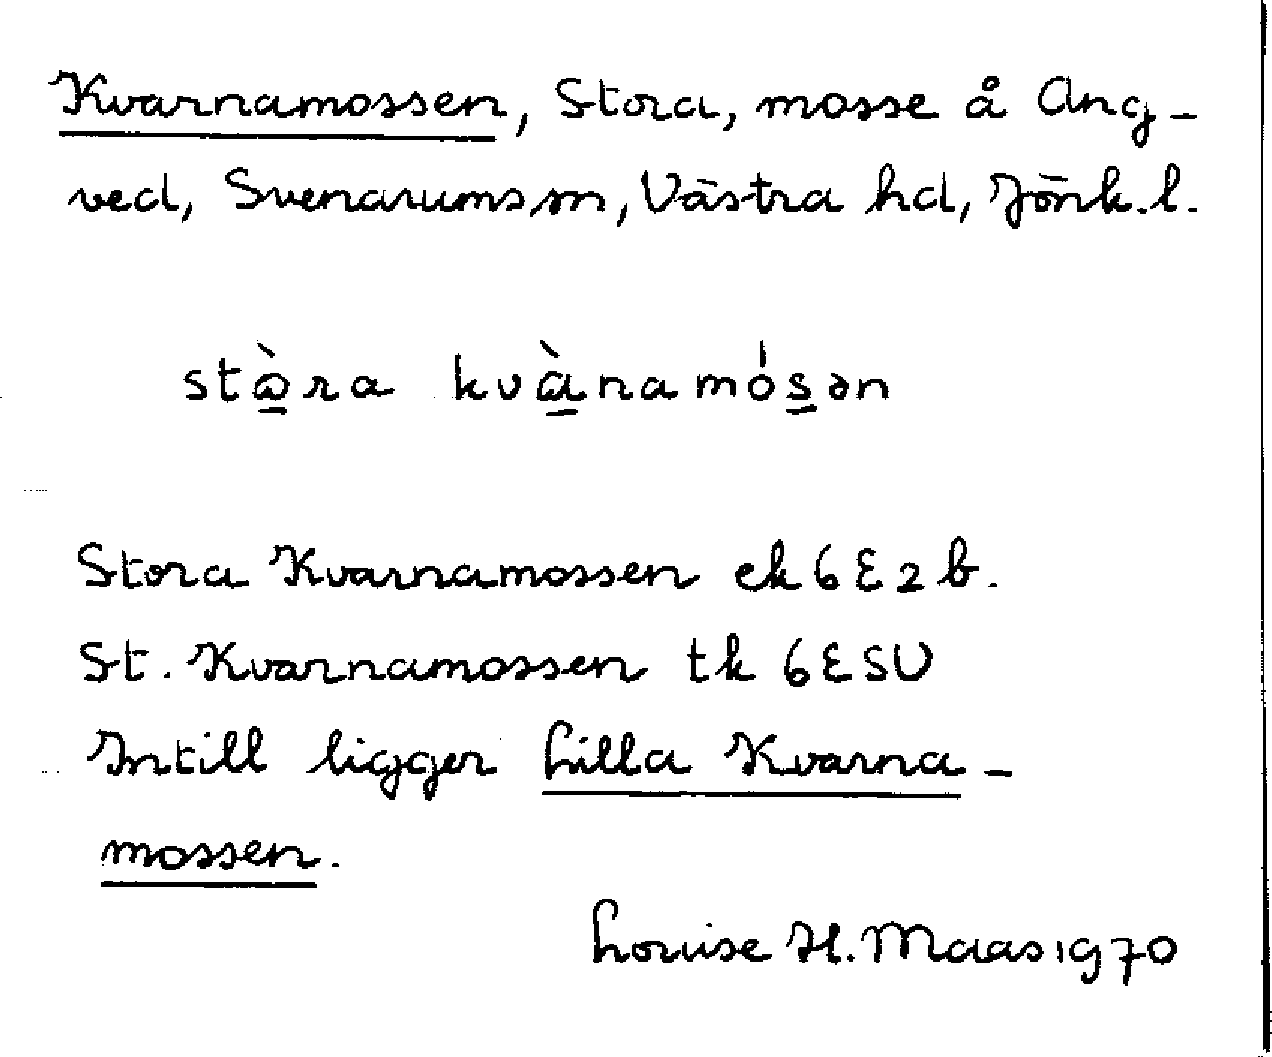 Kvarnamossen, Stora, mosse å Ang-
ved, Svenarums sn, Västra hd, Jönk. l.
stɷ̀ra kvànamósən
Stora Kvarnamossen ek 6E2b.
St. Kvarnamossen tk 6ESV
Intill ligger Lilla Kvarna-
mossen.
Louise H. Maas 1970